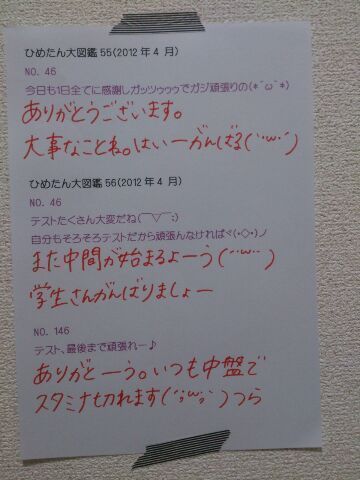 ひめたん大図鑑55(2012年4月)
NO. 46
今日も1日全てに感謝しガッツゥゥゥでガジ頑張りの(*´ω`*)
ありがとうございます。
大事なことね。はいーがんばる(´･ω･`)
ひめたん大図鑑56(2012年4月)
NO. 46
テストたくさん大変だね(￣▽￣;)
自分もそろそろテストだから頑張んなければヾ(•◇•)ノ
また中間が始まるよーう(´･ω･`)
学生さんがんばりましょー
NO. 146
テスト、最後まで頑張れー♪
ありがとーう。いつも中盤で
スタミナ切れます(´;ω;`)つら